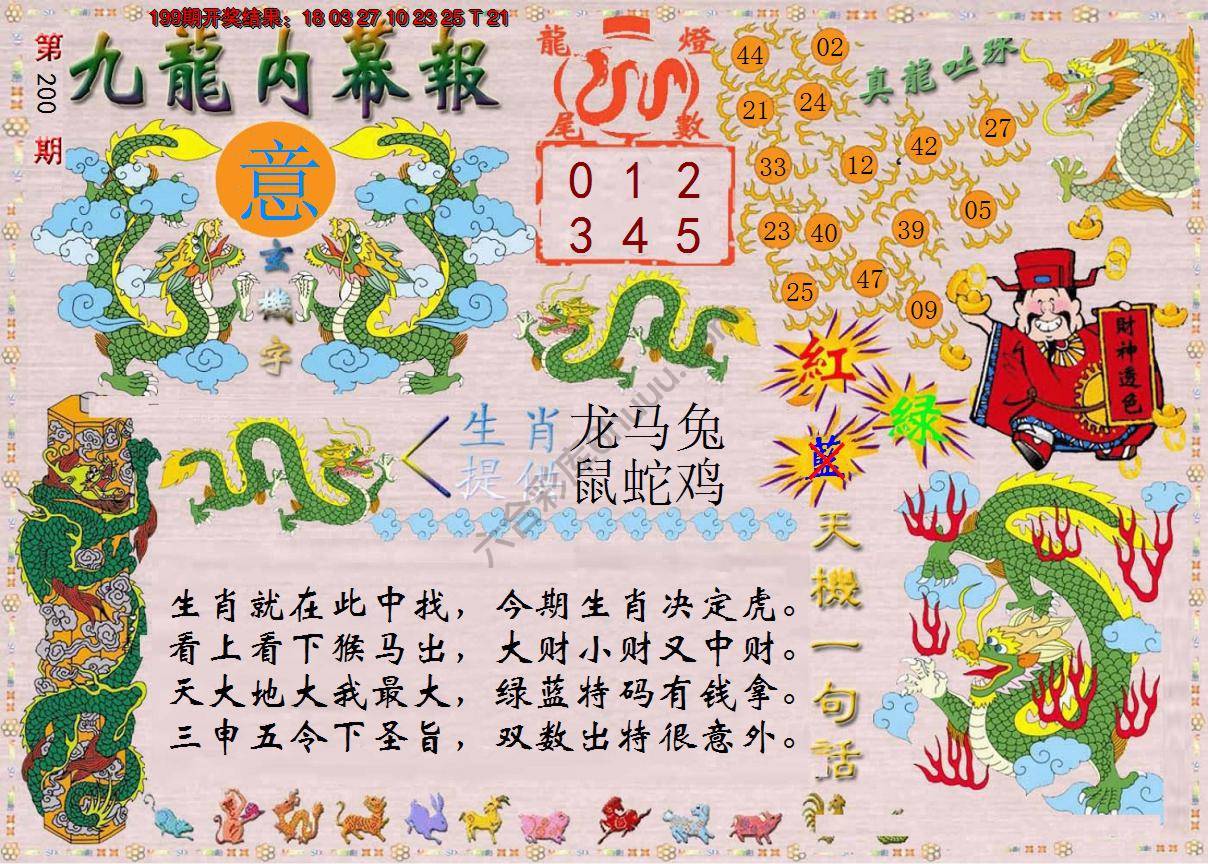 199期开奖结果：18 03 27 10 23 25 T 21
第200期
九龍内幕報
意
玄機字
龍燈
尾數
0 1 2
3 4 5
真龍吐珠
44 02
21 24
42 27
33 12
05
23 40 39
25 47
09
財神透色
紅
綠
藍
生肖 龙马兔
提供 鼠蛇鸡
天機一句話
生肖就在此中找，今期生肖决定虎。
看上看下猴马出，大财小财又中财。
天大地大我最大，绿蓝特码有钱拿。
三申五令下圣旨，双数出特很意外。